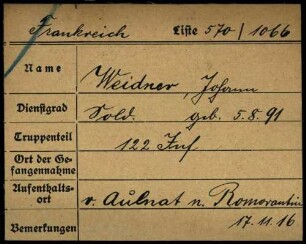 Frankreich Liste 570 / 1066
Name Weidner, Johann
Dienstgrad Sold. geb. 5.8.91
Truppenteil 122 Inf
Ort der Ge-
fangennahme
Aufenthalts-
ort v. Aulnat n. Romorantin
17.11.16
Bemerkungen